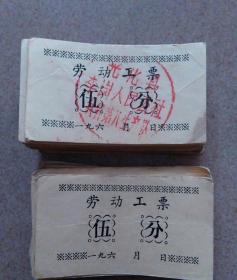 劳动工票
伍 分
一九六 月 日
劳动工票
伍 分
一九六 月 日